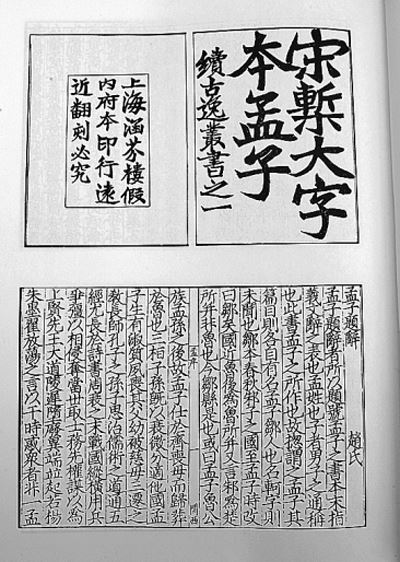 宋槧大字
本孟子
續古逸叢書之一
上海涵芬樓假
內府本印行遠
近翻刻必究
孟子題辭
趙氏
孟子題辭者所以題號孟子之書本末指
義文辭之表也孟姓也子者男子之通稱
也此書孟子之所作也故揔謂之孟子其
篇目則各自有名孟子鄒人也名軻字則
未聞也鄒本春秋邾子之國至孟子時改
曰鄒矣國近魯後為魯所并又言邾為楚
所并非魯也今鄒縣是也或曰孟子魯公
族孟孫之後故孟子仕於齊喪母而歸葬
於魯也三桓子孫既以衰微分適他國孟
子生有淑質夙喪其父幼被慈母三遷之
教長師孔子之孫子思治儒術之道通五
經尤長於詩書周衰之末戰國縱橫用兵
爭强以相侵奪當世取士務先權謀以為
上賢先王大道陵遲隳廢異端並起若楊
朱墨翟放蕩之言以干時惑衆者非一孟